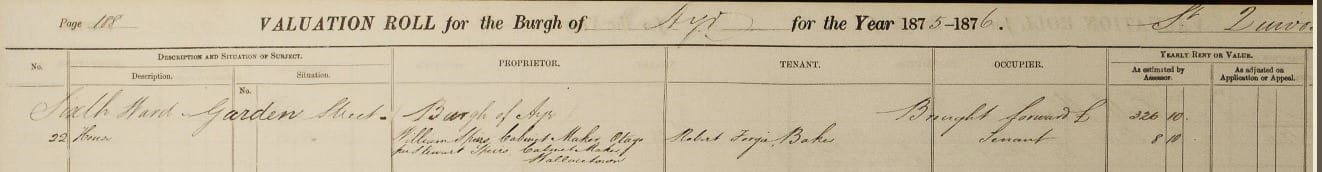 Page 108 VALUATION ROLL for the Burgh of Ayr for the Year 1875-1876. St
DESCRIPTION AND SITUATION OF SUBJECT. YEARLY RENT OR VALUE.
No. PROPRIETOR. TENANT. OCCUPIER.
Description. Situation. As estimated by Assessor. As adjusted on Application or Appeal.
No.
Sixth Ward Garden Street. Burgh of Ayr Brought forward £ 326 10.
22 House William Spiers, Cabinet Maker, Otago Robert Baker Tenant 8 10
per Stewart Spiers, Cabinet Maker,
Wallacetown